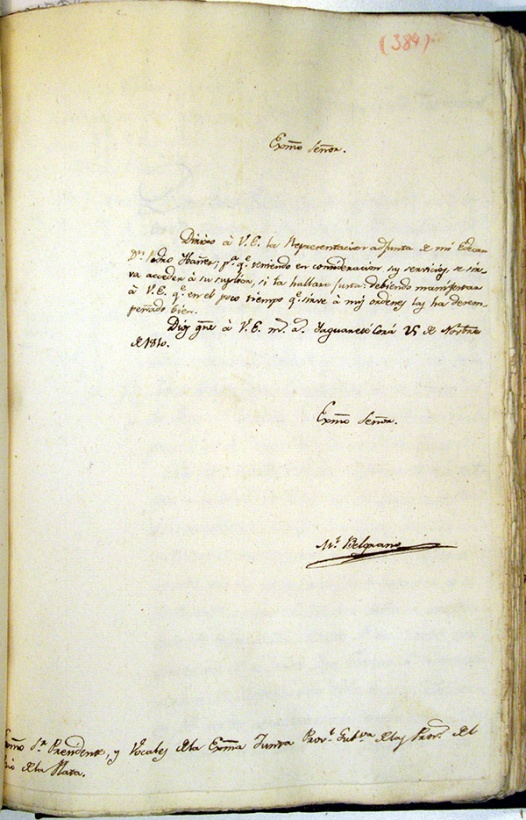 (384)
Exmo Señor.
Dirijo à V. E. la Representacion adjunta de mi Edecan
Dn. Pedro Ibañez; pa. qe. teniendo en consideracion sus servicios, se sir-
va acceder à su suplica, si la hallare justa: debiendo manifestar
à V. E. qe. en el poco tiempo qe. sirve à mis ordenes las ha desem-
peñado bien.
Dios gue à V. E. ms. as. Yaguareté Corá 25 de Novbre
de 1810.
Exmo Señor.
Ml. Belgrano
Exmo Sr. Presidente, y Vocales de la Exma Junta Provl. Gubva de las Provs. del
Rio de la Plata.